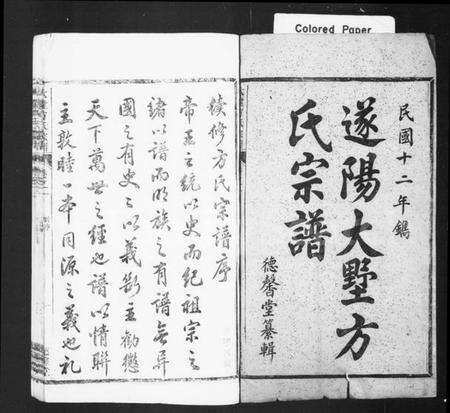 Colored Paper
民國十二年鐫
遂陽大墅方
氏宗譜
德馨堂纂輯
續修方氏宗譜序
帝王之統以史而紀祖宗之
緒以譜而明族之有譜無異
國之有史之以義斷主勸懲
天下萬世之經也譜以情聯
主敦睦一本同源之義也礼